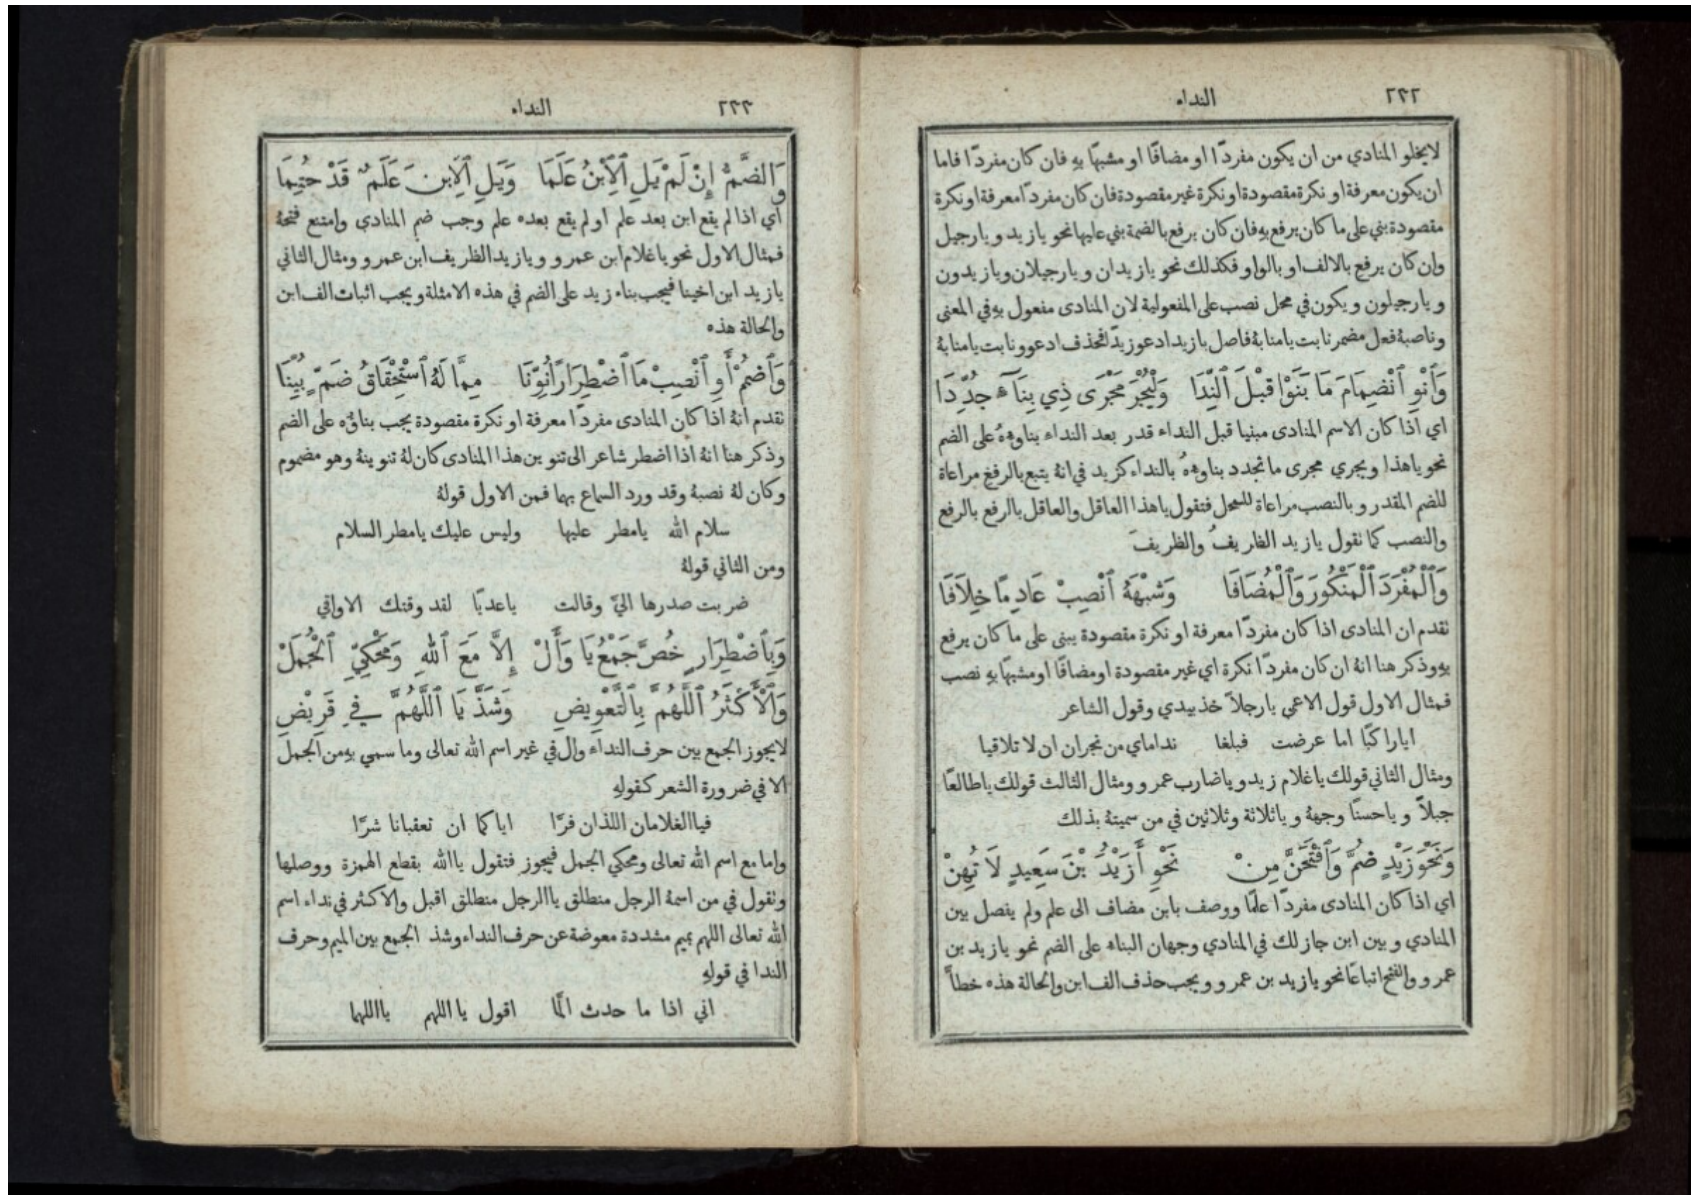 ٢٣٢ النداء
لايخلو المنادي من ان يكون مفردًا او مضافًا او مشبهًا بهِ فان كان مفردًا فاما
ان يكون معرفة او نكرة مقصودة او نكرة غير مقصودة فان كان مفردًا معرفة او نكرة
مقصودة بني على ما كان يرفع بهِ فان كان يرفع بالضمة بني عليها نحو يا زيد و يا رجيل
وان كان يرفع بالالف او بالواو فكذلك نحو يا زيدان و يا رجيلان و يا زيدون
و يا رجيلون و يكون في محل نصب على المفعولية لان المنادى مفعول بهِ في المعنى
وناصبهُ فعل مضمر نابت يا منابهُ فاصل يا زيد ادعو زيدًا فحذف ادعو ونابت يا منابهُ
وَٱنْوِ ٱنْضِمَامَ مَا بَنَوْا قَبْلَ ٱلنِّدَا وَلْيُجْرَ مَجْرَى ذِي بِنَاءٍ جُدِّدَا
اي اذا كان الاسم المنادى مبنيا قبل النداء قدر بعد النداء بناوهُ على الضم
نحو يا هذا ويجري مجرى ما تجدد بناوهُ بالنداء كزيد في انهُ يتبع بالرفع مراعاة
للضم المقدر و بالنصب مراعاة للمحل فتقول يا هذا العاقل والعاقل بالرفع بالرفع
والنصب كما تقول يا زيد الظريفُ والظريفَ
وَٱلْمُفْرَدَ ٱلْمَنْكُورَ وَٱلْمُضَافَا وَشِبْهَهُ ٱنْصِبْ عَادِمًا خِلَافَا
تقدم ان المنادى اذا كان مفردًا معرفة او نكرة مقصودة يبنى على ما كان يرفع
بهِ وذكر هنا انهُ ان كان مفردًا نكرة اي غير مقصودة او مضافًا او مشبهًا بهِ نصب
فمثال الاول قول الاعمى يا رجلاً خذ بيدي وقول الشاعر
ايا راكبًا اما عرضت فبلغا نداماي من نجران ان لا تلاقيا
ومثال الثاني قولك يا غلام زيد و يا ضارب عمرو ومثال الثالث قولك يا طالعًا
جبلاً و يا حسنًا وجههُ و يا ثلاثة وثلاثين في من سميتهُ بذلك
وَنَحْوَ زَيْدٍ ضُمَّ وَٱفْتَحَنَّ مِنْ نَحْوِ أَزَيْدُ بْنَ سَعِيدٍ لَا تَهِنْ
اي اذا كان المنادى مفردًا علمًا ووصف بابن مضاف الى علم ولم يفصل بين
المنادي و بين ابن جاز لك في المنادي وجهان البناء على الضم نحو يا زيد بن
عمرو والفتح اتباعًا نحو يا زيد بن عمرو و يجب حذف الف ابن والحالة هذه خطاً
٢٣٣ النداء
وَالضَّمُّ إِنْ لَمْ يَلِ ٱلِٱبْنُ عَلَمَا وَيَلِ ٱلِٱبْنَ عَلَمٌ قَدْ حُتِمَا
اي اذا لم يقع ابن بعد علم او لم يقع بعده علم وجب ضم المنادى وامتنع فتحهُ
فمثال الاول نحو يا غلام ابن عمرو و يا زيد الظريف ابن عمرو ومثال الثاني
يا زيد ابن اخينا فيجب بناء زيد على الضم في هذه الامثلة و يجب اثبات الف ابن
والحالة هذه
وَٱضْمُمْ أَوِ ٱنْصِبْ مَا ٱضْطِرَارًا نُوِّنَا مِمَّا لَهُ ٱسْتِحْقَاقُ ضَمٍّ بُيِّنَا
تقدم انهُ اذا كان المنادى مفردًا معرفة او نكرة مقصودة يجب بناؤه على الضم
وذكر هنا انهُ اذا اضطر شاعر الى تنوين هذا المنادى كان لهُ تنوينهُ وهو مضموم
وكان لهُ نصبهُ وقد ورد السماع بهما فمن الاول قولهُ
سلام الله يا مطر عليها وليس عليك يا مطر السلام
ومن الثاني قولهُ
ضربت صدرها اليّ وقالت يا عديًا لقد وقتك الاواقي
وَبِٱضْطِرَارٍ خُصَّ جَمْعُ يَا وَأَلْ إِلَّا مَعَ ٱللهِ وَمَحْكِيِّ ٱلْجُمَلْ
وَٱلْأَكْثَرُ ٱللَّهُمَّ بِٱلتَّعْوِيضِ وَشَذَّ يَا ٱللَّهُمَّ فِي قَرِيضِ
لايجوز الجمع بين حرف النداء وال في غير اسم الله تعالى وما سمي بهِ من الجمل
الا في ضرورة الشعر كقولهِ
فيا الغلامان اللذان فرّا اياكما ان تعقبانا شرّا
واما مع اسم الله تعالى ومحكي الجمل فيجوز فتقول يا الله بقطع الهمزة ووصلها
وتقول في من اسمهُ الرجل منطلق يا الرجل منطلق اقبل والاكثر في نداء اسم
الله تعالى اللهم بميم مشددة معوضة عن حرف النداء وشذ الجمع بين الميم وحرف
الندا في قولهِ
اني اذا ما حدث المّا اقول يا اللهم يا اللهما